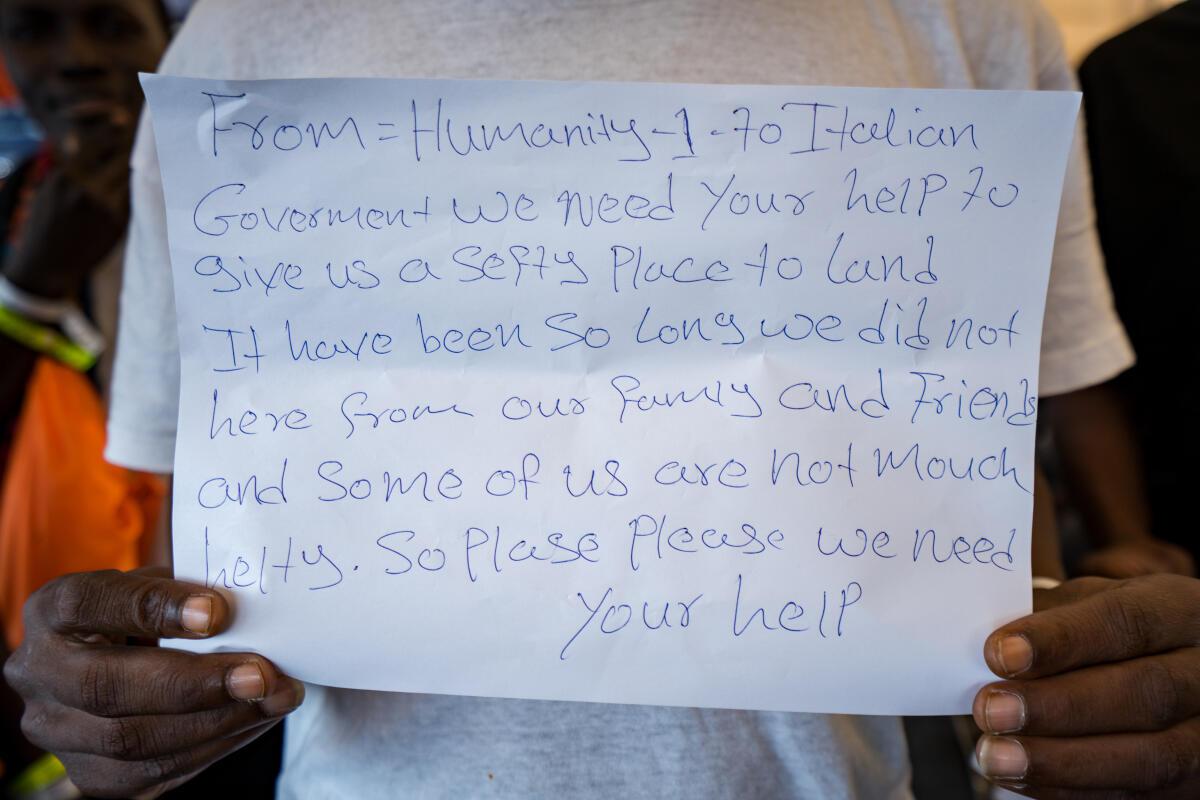 From = Humanity-1-to Italian
Goverment we need your help to
give us a sefty place to land
It have been so long we did not
here from our famly and Friends
and some of us are not mouch
helty. So Plase Please we need
your help